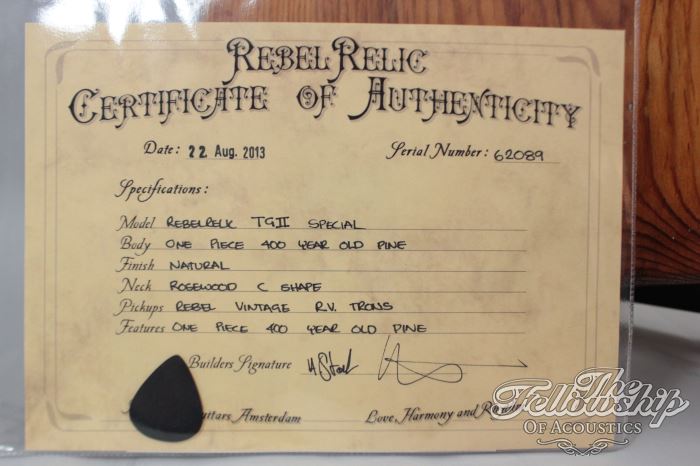 Rebel Relic
Certificate of Authenticity
Date: 22 Aug. 2013 Serial Number: 62089
Specifications:
Model REBELRELIC TGII SPECIAL
Body ONE PIECE 400 YEAR OLD PINE
Finish NATURAL
Neck ROSEWOOD C SHAPE
Pickups REBEL VINTAGE R.V. TRONS
Features ONE PIECE 400 YEAR OLD PINE
Builders Signature
Amsterdam Love, Harmony and
The
Fellowship
Of Acoustics